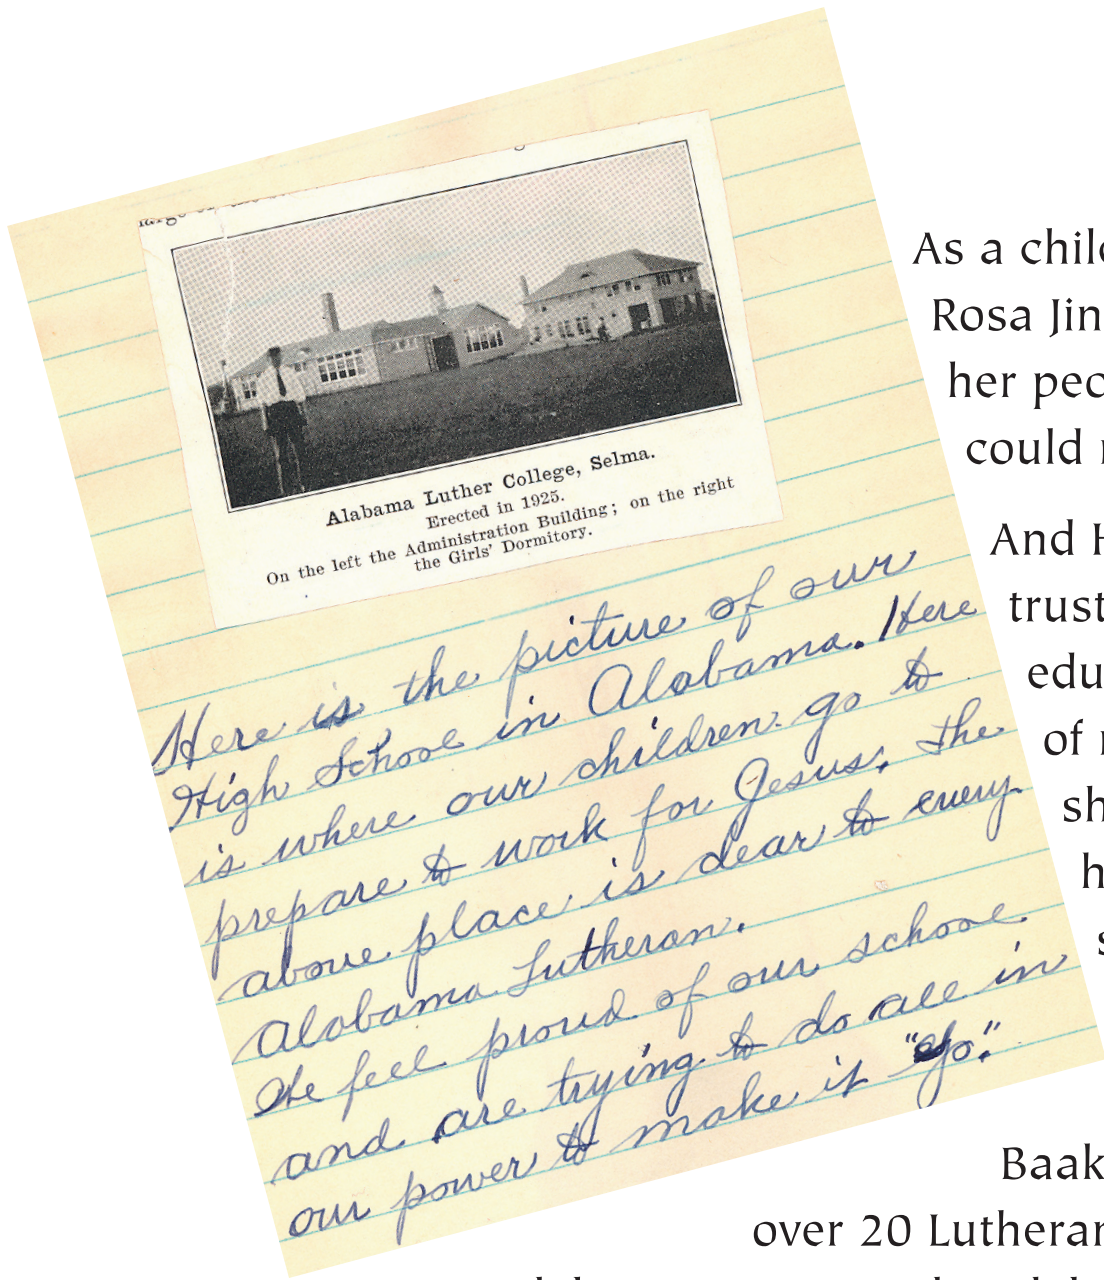 Alabama Luther College, Selma.
Erected in 1925.
On the left the Administration Building; on the right
the Girls' Dormitory.
Here is the picture of our
High School in Alabama. Here
is where our children go to
prepare to work for Jesus. The
above place is dear to every
Alabama Lutheran.
We feel proud of our school
and are trying to do all in
our power to make it "go."
As a chil
Rosa Jin
her peo
could
And H
trust
edu
of
sh
h
s
Baak
over 20 Lutheran